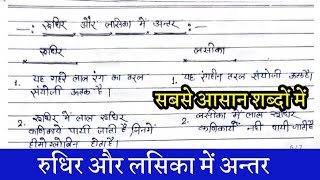 -: रुधिर और लसिका में अन्तर :-
रुधिर
लसीका
1. यह गहरे लाल रंग का तरल
संयोजी ऊतक है।
1. यह रंगहीन तरल संयोजी ऊतक है।
सबसे आसान शब्दों में
2. रुधिर में लाल रुधिर
कणिकायें पायी जाती है जिनमें
हीमोग्लोबिन होता है।
2. लसीका में लाल रुधिर
कणिकायें नहीं पायी जाती है
रुधिर और लसिका में अन्तर